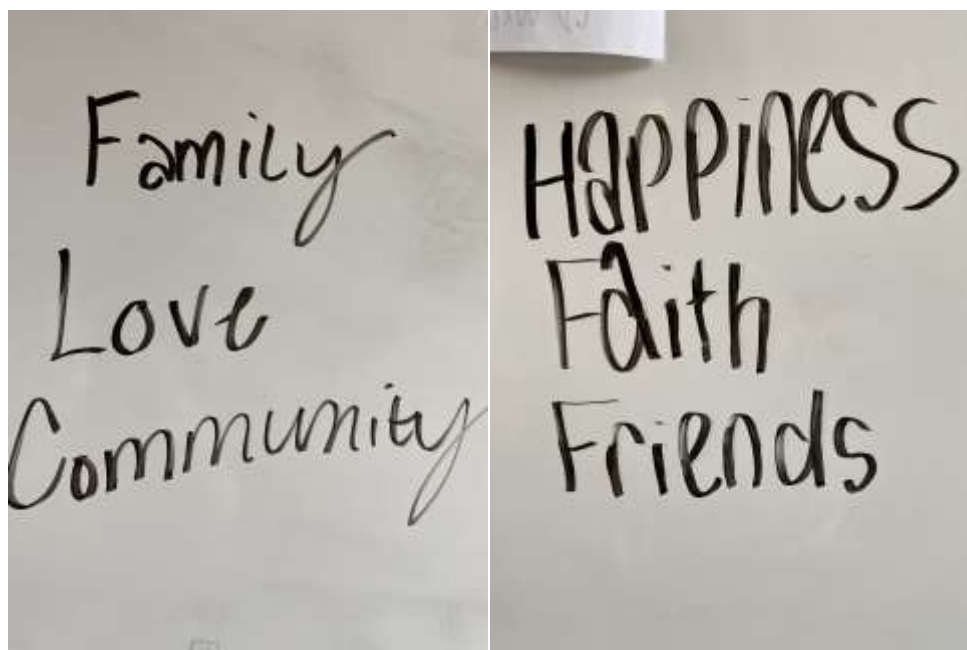 Family
Love
Community
Happiness
Faith
Friends